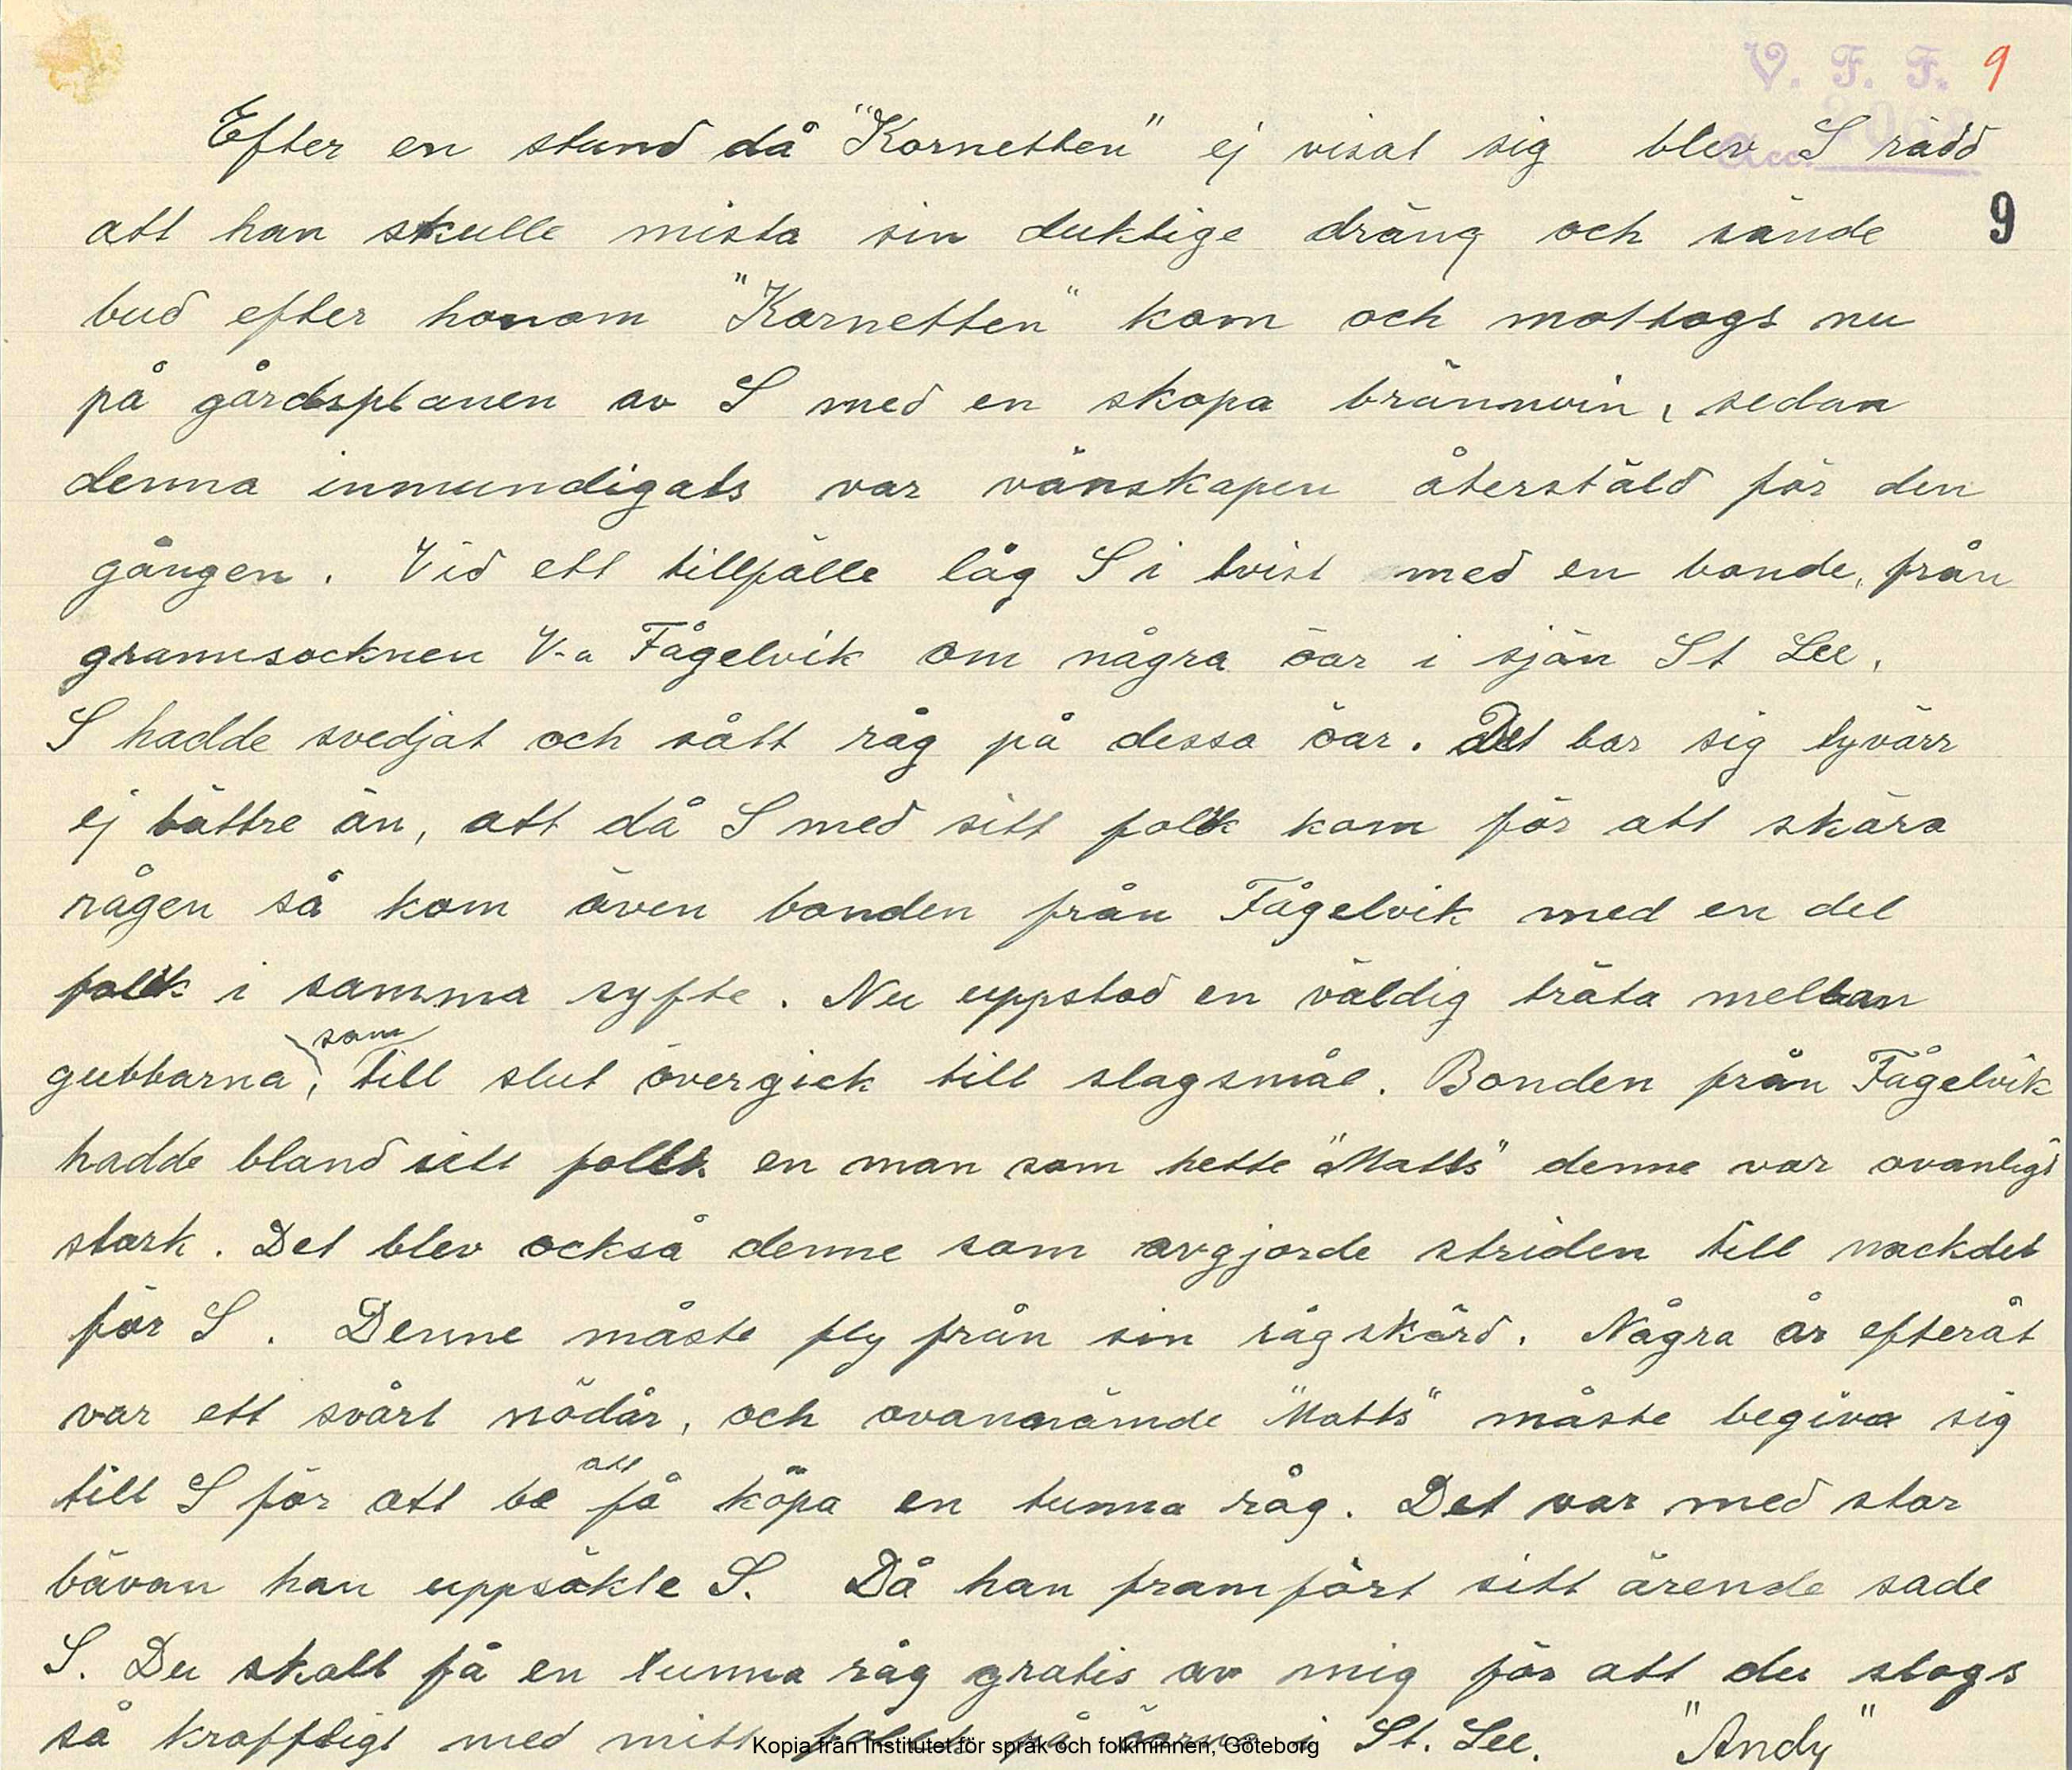 V. F. F. 9
Acc.
Efter en stund då "Kornetten" ej visat sig blev S rädd
att han skulle mista sin duktige dräng och sände
9
bud efter honom "Kornetten" kom och mottogs nu
på gårdsplanen av S med en skopa brännvin, sedan
denna inmundigats var vänskapen återstäld för den
gången. Vid ett tillfälle låg S i tvist med en bonde, från
grannsocknen V-a Fågelvik om några öar i sjön St Lee,
S hadde svedjat och sått råg på dessa öar. Det bar sig tyvärr
ej bättre än, att då S med sitt folk kom för att skära
rågen så kom även bonden från Fågelvik med en del
folk i samma syfte. Nu uppstod en väldig träta mellan
som
gubbarna, till slut övergick till slagsmål. Bonden från Fågelvik
hadde bland sitt folk en man som hette "Matts" denne var ovanligt
stark. Det blev också denne som avgjorde striden till nackdel
för S. Denne måste fly från sin rågskörd. Några år efteråt
var ett svårt nödår, och ovannämde "Matts" måste begiva sig
att
till S för att be få köpa en tunna råg. Det var med stor
bävan han uppsökte S. Då han framfört sitt ärende sade
S. Du skall få en tunna råg gratis av mig för att du slogs
så kraftligt med mitt folk på öarna i St. Lee. "Andy"
Kopia från Institutet för språk och folkminnen, Göteborg